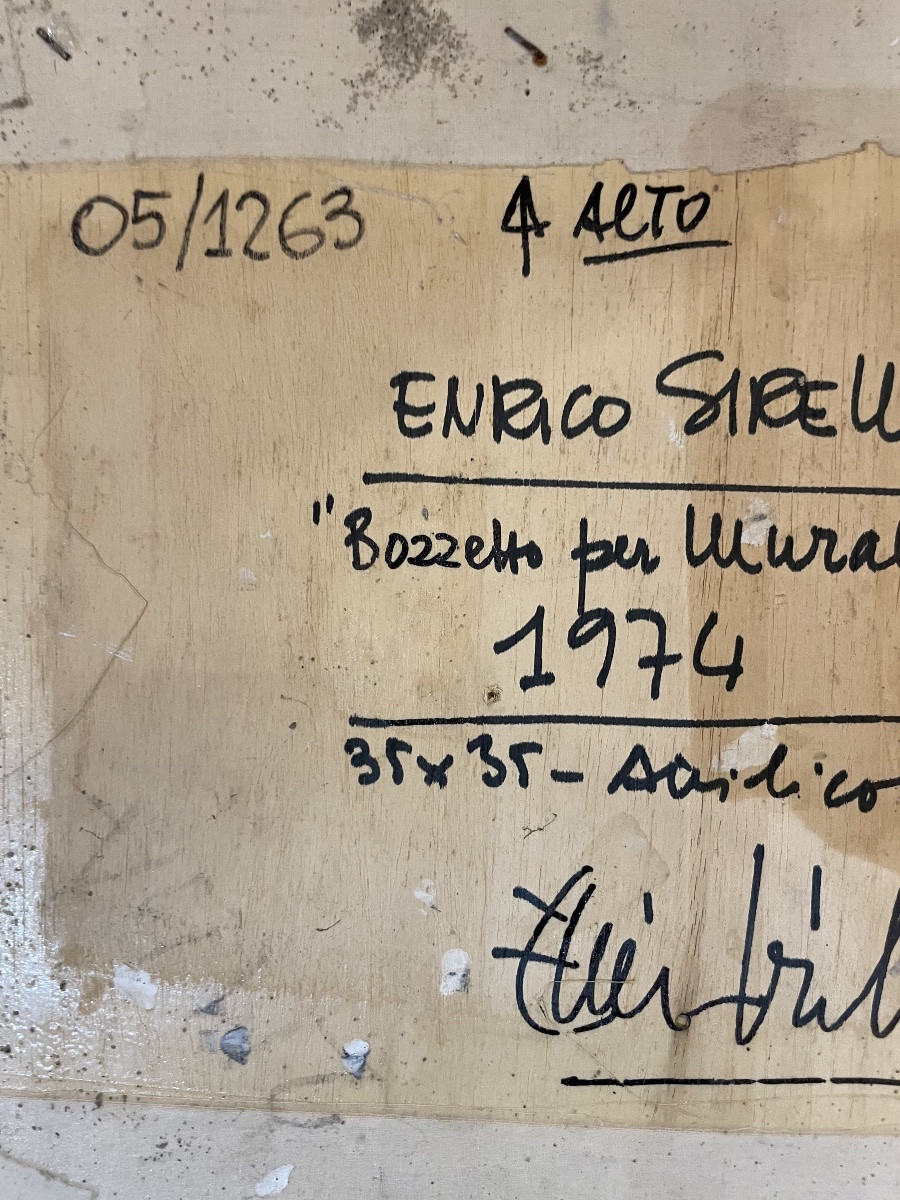 05/1263
ALTO
ENRICO SIRELL
"Bozzetto per Mural
1974
35x35 - Acrilico